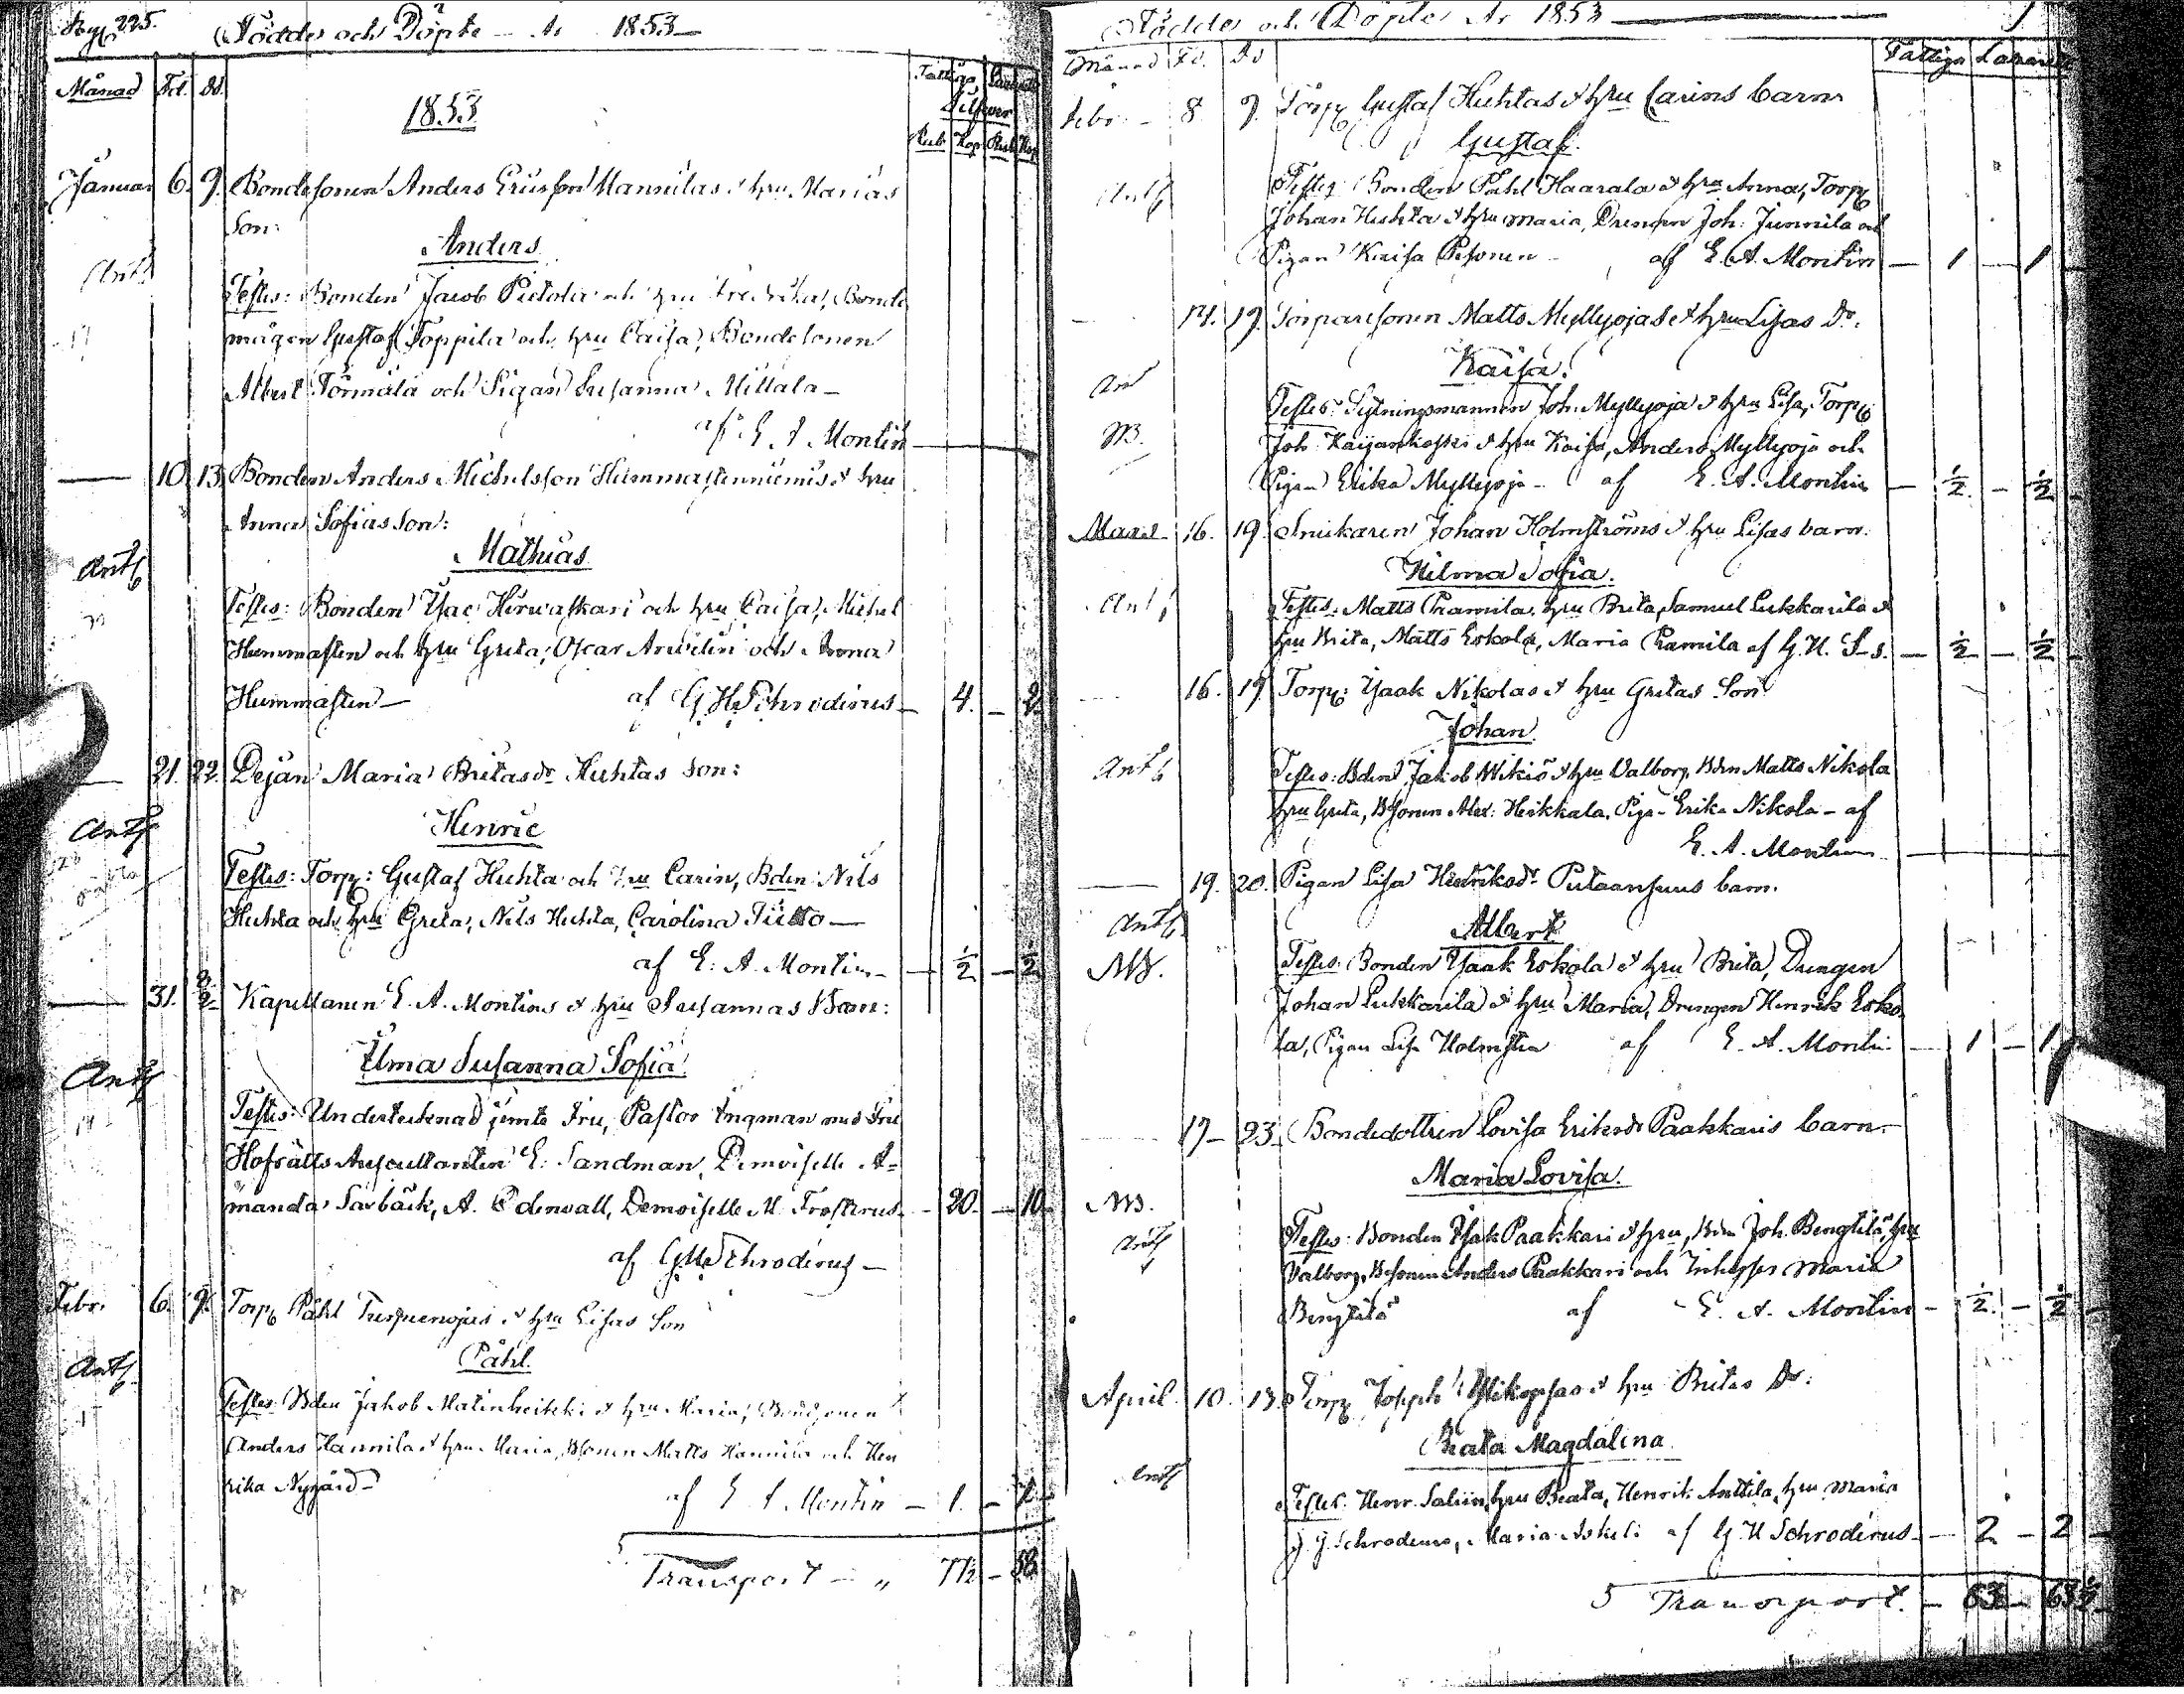 Födde och Döpte År 1853
Månad Fd. Dd.
Rub. Kop. Rub. Kop.
1853
Januar 6. 9. Bondesonen Anders Ericsson Hannilas & hru Marias
Son:
Anders
Testes: Bonden Jacob Pietola och hru Fredrika, Bonde
mågen Gustaf Toppila och hru Caisa, Bondesonen
Albert Törmälä och Pigan Susanna Mattala
af E. A. Montin
10. 13. Bonden Anders Michelsson Hummastenniemis & hru
Anna Sofias Son:
Mathias
Antf
Testes: Bonden Isac Hirwaskari och hru Caisa, Michel
Hummasten och hru Greta, Oscar Arwelin och Anna
Hummasten — af G. H. Schroderus — 4. — 2.
21. 22. Dejan Maria Britasdr Huhtas son:
Henric
Antf
Testes: Torp: Gustaf Huhta och hru Carin, Bden Nils
Huhta och hru Greta, Nils Huhta, Carolina Tiitto —
af E. A. Montin — ½ — ½
31. 2/2 Kapellanen E. A. Montins & hru Susannas Barn:
Ilma Susanna Sofia
Antf
Testes: Undertecknad jemte Fru, Pastor Ingman med Fru
Hofrätts Auscultanten E. Sandman, Demoiselle A-
manda Sarbäck, A. Edenvall, Demoiselle M. Frosterus — 20. — 10.
af G H Schroderus —
Febr. 6. 9. Torp Påhl & hru Lisas Son
Påhl.
Antf
Testes: Bden Jakob Matinheikki & hru Maria, Bondsonen
Anders Hannila & hru Maria, Bsonen Matts Hannila och Hen
rika Nygård —
af E A Montin — 1. — 1.
Transport — „ 77½ — 58
Födde och Döpte År 1853 1
Månad Fd. Dd Fattiga Lazarett
Febr. 8. 9. Torp Gustaf Huhtas & hru Carins barn
Gustaf.
Antf
Testes: Bonden Påhl Haarala & hru Anna, Torp
Johan Huhta & hru Maria, Drengen Joh: Junnila och
Pigan Kaisa Pesonen — af E. A. Montin — 1 — 1
14. 19. Torparesonen Matts Myllyojas & hru Lisas Dr.
Kaisa.
Testes: Sytningsmannen Joh. Myllyoja & hru Lisa, Torp
Joh. Kaijankoski & hru Kaisa, Anders Myllyoja och
Pigan Erika Myllyoja — af E. A. Montin — ½ — ½
Mars 16. 19. Snickaren Johan Holmströms & hru Lisas barn.
Hilma Sofia.
Antf
Testes: Matts Ramila, hru Brita, Samuel Lukkarila &
hru Brita, Matts Eskola, Maria Ramila af G. H. S-s. — ½ — ½
16. 19. Torp: Isaak Nikolas & hru Gretas Son
Johan
Antf
Testes: Bden Jakob Wikiö & hru Valborg, Bden Matts Nikola
hru Greta, Bsonen Alex: Heikkala, Piga- Erika Nikola — af
E. A. Montin
19. 20. Pigan Lisa Henriksdr Putaansuus barn.
Albert
Antf
NB.
Testes: Bonden Isaak Eskola & hru Brita, Drengen
Johan Lukkarila & hru Maria, Drengen Henrik Esko
la, Pigan Lisa Holmsten af E. A. Montin — 1 — 1
17 — 23. Bondedottren Lovisa Eriksdr Paakkaris barn.
Maria Lovisa.
NB.
Antf
Testes: Bonden Isak Paakkari & hru, Bden Joh. Bengtilä, hru
Valborg, Bsonen Anders Paakkari och Maria
Bengtilä af E. A. Montin — ½. — ½
April 10. 13. Torp Joseph & hru Britas Dr:
Beata Magdalena
Antf
Testes: Henr. Salin, hru Beata, Henrik Anttila, hru Maria
J. J. Schroderus, Maria af G. H Schroderus — 2 — 2
Transport. — 63 — 63½